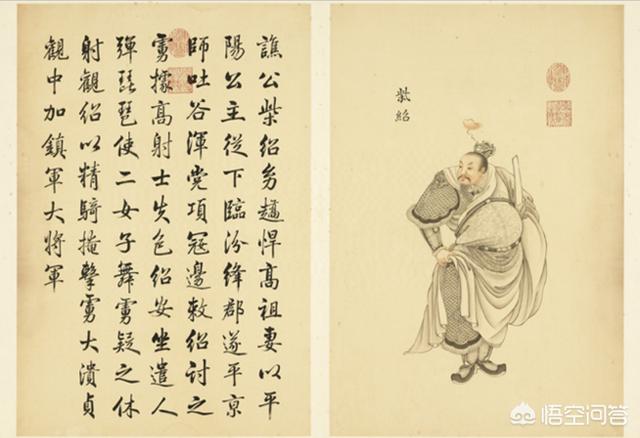 柴紹
譙公柴紹幼趫悍高祖妻以平
陽公主從下臨汾絳郡遂平京
師吐谷渾党項寇邊敕紹討之
虜據高射士失色紹安坐遣人
彈琵琶使二女子舞虜疑之休
射觀紹以精騎掩擊虜大潰貞
觀中加鎮軍大將軍
悟空问答